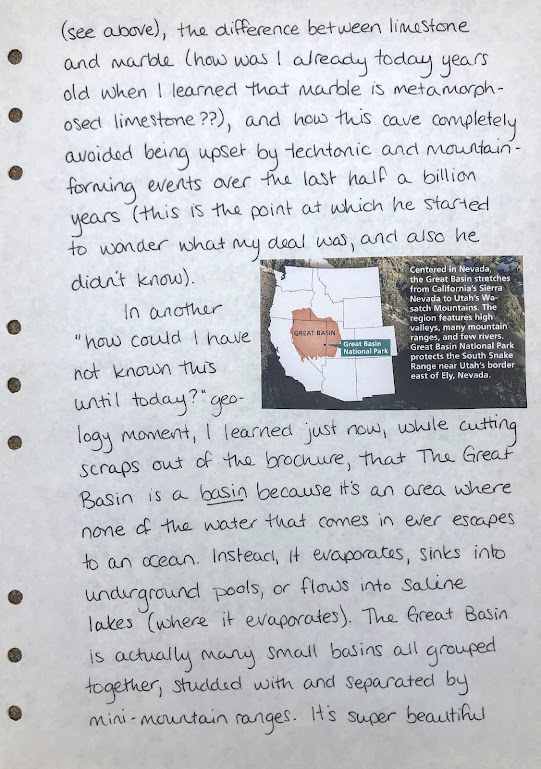 (see above), the difference between limestone
and marble (how was I already today years
old when I learned that marble is metamorph-
osed limestone??), and how this cave completely
avoided being upset by techtonic and mountain-
forming events over the last half a billion
years (this is the point at which he started
to wonder what my deal was, and also he
didn't know).
In another
"how could I have
not known this
until today?" geo-
Centered in Nevada,
the Great Basin stretches
from California's Sierra
Nevada to Utah's Wa-
satch Mountains. The
region features high
valleys, many mountain
ranges, and few rivers.
Great Basin National Park
protects the South Snake
Range near Utah's border
east of Ely, Nevada.
GREAT BASIN
Great Basin
National Park
logy moment, I learned just now, while cutting
scraps out of the brochure, that The Great
Basin is a basin because it's an area where
none of the water that comes in ever escapes
to an ocean. Instead, it evaporates, sinks into
underground pools, or flows into saline
lakes (where it evaporates). The Great Basin
is actually many small basins all grouped
together, studded with and separated by
mini-mountain ranges. It's super beautiful